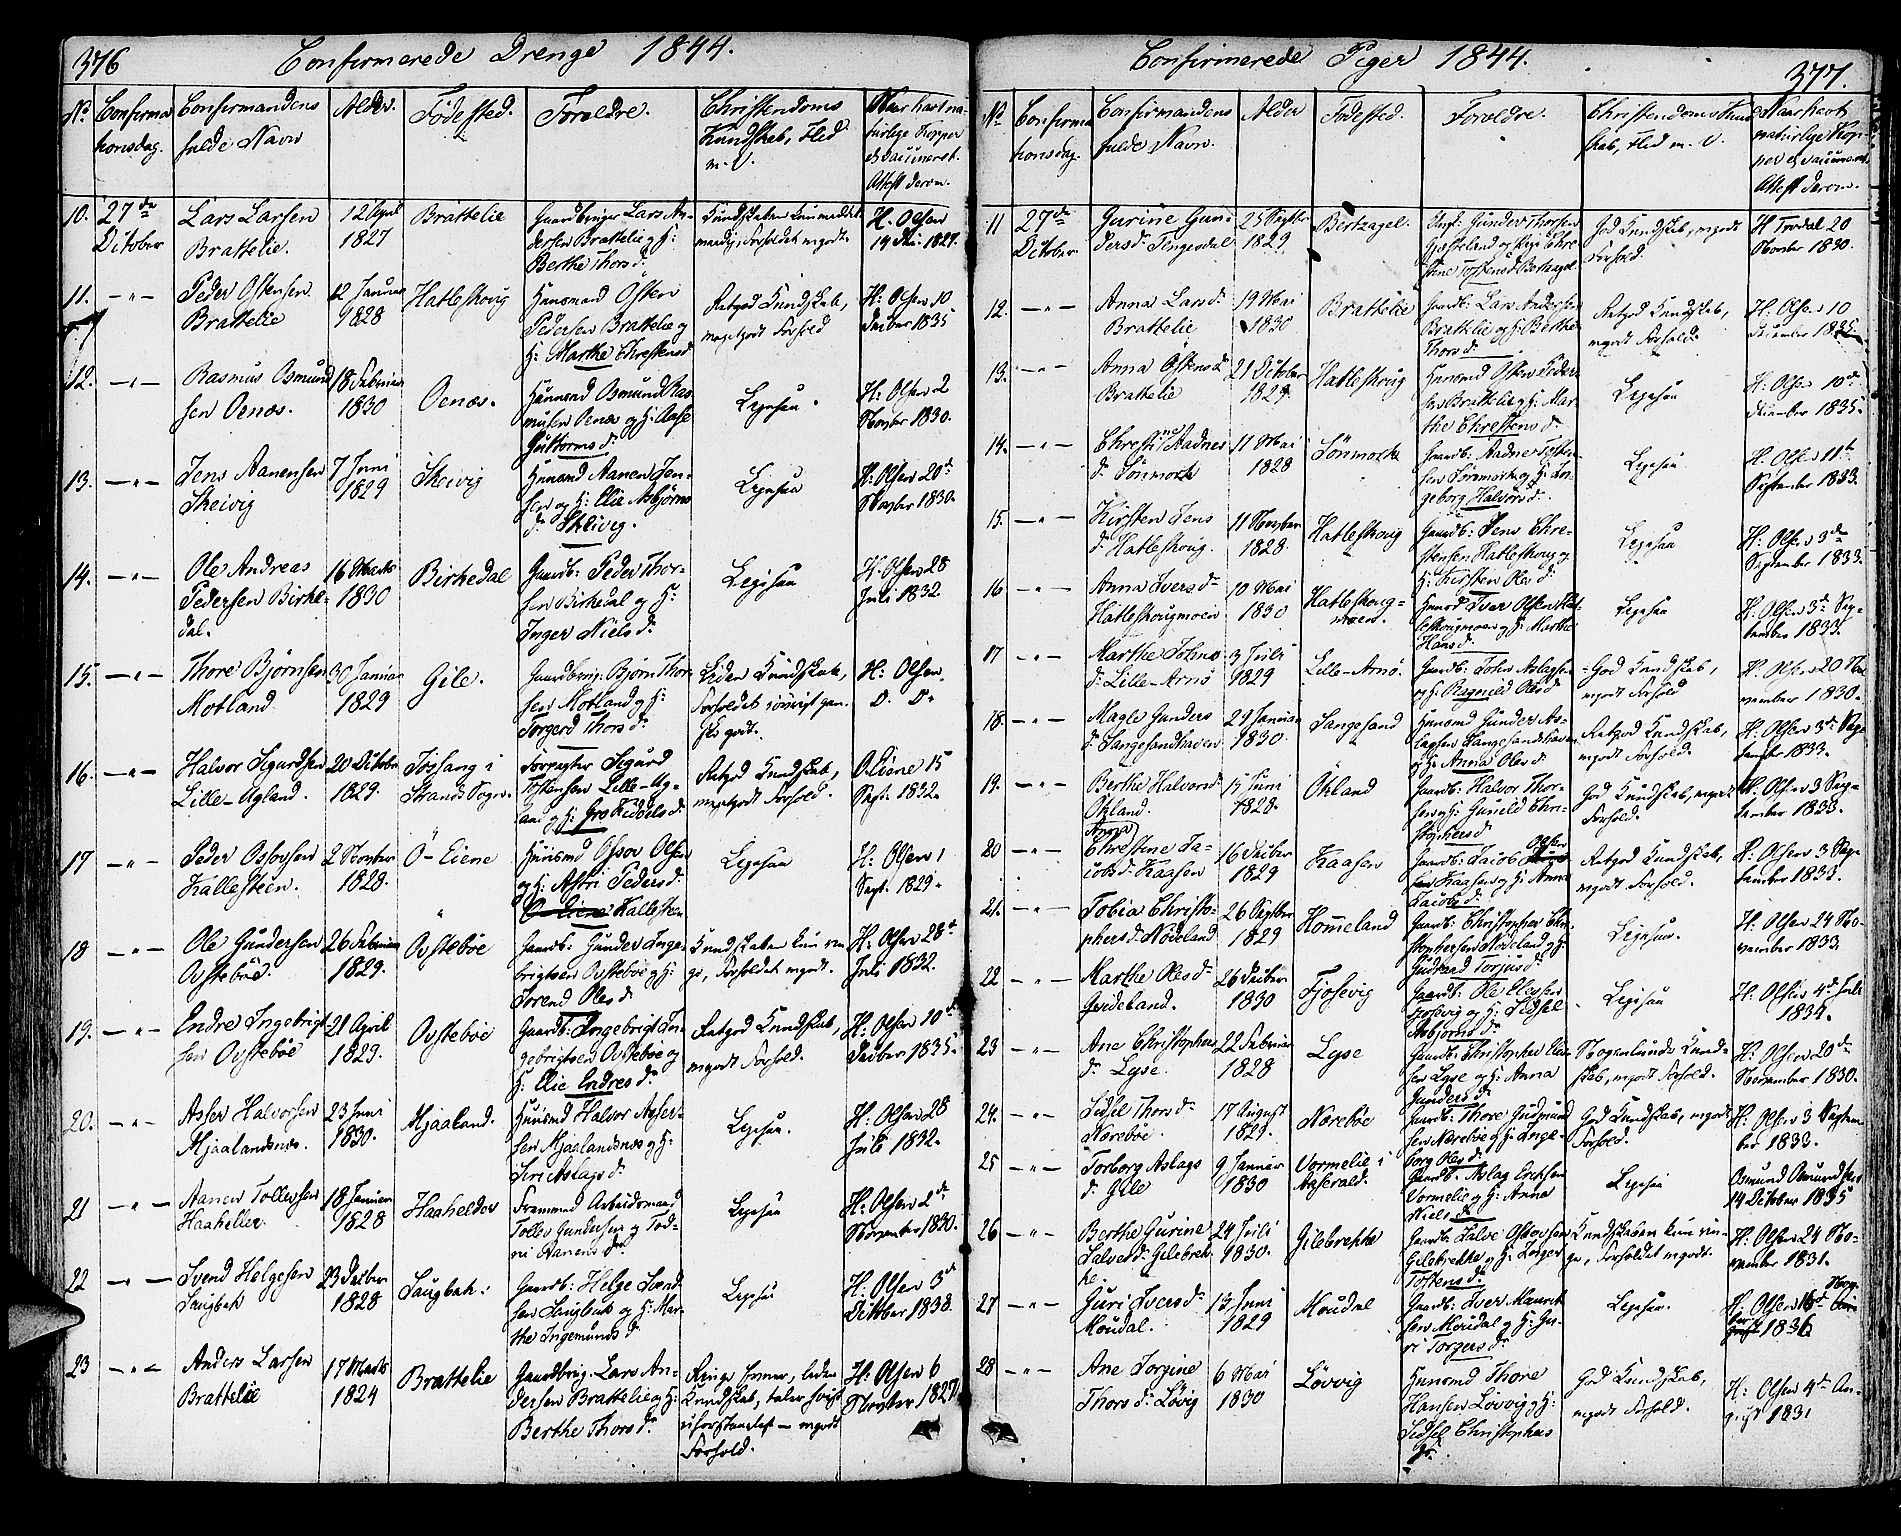 376
Confirmerede Drenge 1844.
No
Confirma
tionsdag.
Confirmandens
fulde Navn
Alder.
Fødested.
Forældre.
Christendoms
Kundskab, Flid
m. V.
Naar havt na-
turlige Kopper
el. vaccineret.
Attest derom.
10.
27de
October
Lars Larsen
Brattelie.
12 April
1827
Brattelie
Gaardbruger Lars An-
dersen Brattelie og H:
Berthe Thorsd.
H. Olsen
11.
Peder Ostensen
Brattelie
12 Januar
1828
Hatleskovig
Huusmand Osten
Pedersen Brattelie og
H: Marthe Chrestensd
Retgod Kundskab,
meget godt Forhold
H: Olsen 10
Decber 1835
12.
Rasmus Osmund
sen Oenæs.
18 Februar
1830
Oenæs.
Huusmand Osmund Ras-
musen Oenæs og H: Aase
Guttormsd.
Ligesaa
H: Olsen 2
Novber 1830.
13.
Jens Aanensen
Skeivig
7 Juni
1829
Skeivig
Huusmd Aanen Jen-
sen og H: Elie Asbjørns
d. Skeivig.
Ligesaa
H: Olsen 20d.
Novber 1830.
14.
Ole Andreas
Pedersen Birke-
dal.
16 Marts
1830
Birkedal
Gaardb: Peder Thor-
sen Birkedal og H:
Inger Nielsd.
Ligesaa
H: Olsen 28
Juli 1832
15.
Thore Bjørnsen
Motland
30 Januar
1829
Gile.
Gaardbrug: Bjørn Thor-
sen Motland og H:
Torgerd Thorsd.
Liden Kundskab,
Forholdet iøvrigt gan-
ske godt.
H: Olsen
D. D.
16.
Halvor Sigurdsen
Lille-Ugland.
20 Octobr
1829.
Tøssang i
Strands Sogn.
Forpagter Sigurd
Tostensen Lille-Ug-
land og H: Gro Kiddelsd.
Retgod Kundskab,
meget godt Forhold.
O. Eiene 15
Sept: 1832.
17
Peder Ossovsen
Kallesteen.
2 Novber
1828.
Ö-Eiene
Huusmd Ossov Olsen
og H: Astri Pedersd.
Kallesteen
Ligesaa
H: Olsen 1
Sept. 1829.
18
Ole Gundersen
Ovstebøe.
26 Februar
1829.
Ovstebøe
Gaardb: Gunder Inge-
brigtsen Ovstebøe og H:
Sørend Olesd.
Kundskaben kun rin
ge, Forholdet mgodt.
H: Olsen 28d.
Juli 1832.
19.
Endre Ingebrigt
sen Ovstebøe
21 April
1829.
Ovstebøe
Gaardb: Ingebrigt In-
gebrigtsen Ovstebøe og
H: Elie Endresd.
Retgod Kundskab,
mgodt Forhold.
H: Olsen 10d.
Decber 1835.
20.
Asser Halvorsen
Mjaalandsnæs.
23 Juni
1830.
Mjaaland.
Huusmd Halvor Asser-
sen Mjaalandsnæs og H:
Siri Aslagsd.
Ligesaa.
H: Olsen 28
Juli 1832.
21
Aanen Tollevsen
Haaheller
18 Januar
1828
Haahelder
Fremmed Arbeidsmand
Tollev Gundersen og Tod-
ni Aanensd.
Ligesaa
H: Olsen 2d.
November 1830.
22
Svend Helgesen
Saugbak
23 Decber
1828
Saugbak.
Gaardb: Helge Svend
sen Saugbak og H: Mar-
the Ingemundsd.
Ligesaa
H: Olsen 3d
October 1838.
23
Anders Larsen
Brattelie
17 Marts
1824
Brattelie
Gaardbrug: Lars An-
dersen Brattelie og H:
Berthe Thorsd.
Ringe Evner, liden
Kundskab, taler høist
uforstaaeligt — mgodt
Forhold.
H: Olsen 6
Novber 1827.
Confirmerede Piger 1844.
377.
No
Confirma
tionsdag.
Confirmandens
fulde Navn.
Alder
Fødested.
Forældre.
Christendoms Kund
skab, Flid m. V.
Naar havt
naturlige Kop-
per el. vaccineret.
Attest derom.
11
27de
October.
Gurine Gun-
dersd. Tengesdal
25 Septbr
1829.
Bertzagel.
Ungk: Gunder Thorsen
God Kundskab, mgodt
Forhold.
H Trodal 20
Novber 1830.
12.
Anna Larsd.
Brattelie
19 Mai
1830
Brattelie
Gaardb: Lars Andersen
Brattelie og H: Berthe
Thorsd.
Retgod Kundskab,
mgodt Forhold.
H: Olsen 10
December 1835.
13.
Anna Ostensd.
Brattelie
21 October
1829.
Hatleskovig
Huusmd Osten Peder-
sen Brattelie og H: Mar-
the Chrestensd.
Ligesaa
H: Olsen 10d.
December 1835.
14.
Christine Aadnes
d. Sönmork
11 Mai
1828
Sönmork
Gaardb: Aadne Tosten-
sen Sönmork og H: In-
geborg Halvorsd.
Ligesaa
H: Olsen 11te
September 1833.
15.
Kirsten Jens
d. Hatleskoug.
11 Novber
1828.
Hatleskoug
Gaardb: Jens Chre-
stensen Hatleskoug og
H: Kirsten Olesd.
Ligesaa
H: Olsen 3de
September 1833.
16
Anna Iversd.
Hatleskougmoen
10 Mai
1830
Hatleskoug-
moen.
Huusmd Iver Olsen Hat-
leskougmoen og H: Marthe
Hansd.
Ligesaa
H: Olsen 3d. Sep-
tember 1833.
17
Marthe Johns
d. Lille-Arnö
3 Juli
1829
Lille-Arnö.
Gaardb: John Aslagsen
og H: Ragnild Olesd.
God Kundskab,
mgodt Forhold
H: Olsen 20 No-
vember 1830.
18.
Magle Gunders
d. Sangesandhaven
29 Januar
1830.
Sangesand
Huusmd Gunder As-
lagsen Sangesandshaven
og H: Anna Olesd.
Retgod Kundskab,
mgodt Forhold.
H: Olsen 3d. Sep-
tember 1833.
19.
Berthe Halvorsd.
Okland.
15 Juni
1828.
Økland
Gaardb: Halvor Thor-
sen og H: Gunild Chri-
stophersd.
God Kundskab, mgodt
Forhold.
H: Olsen 3 Sep-
tember 1833.
20
Anna
Christine Ja-
cobsd. Kaasen
16 Decber
1829
Kaasen
Gaardb: Jacob Olsen
Kaasen og H: Anna
Jacobsd.
Retgod Kundskab,
mgodt Forhold.
H: Olsen 3 Sep-
tember 1833.
21.
Tobia Christo-
phersd. Nödeland
26 Septber
1829
Hommeland
Gaardb: Christopher Chri-
stophersen Nödeland og H:
Gudrand Torjusd.
Ligesaa.
H: Olsen 24 No-
vember 1833
22
Marthe Olesd.
Geideland.
26 Decber
1830
Fjosevig
Gaardb: Ole Olessen
Fjosevig og H: Sidsel
Asbjörnsd.
Ligesaa
H: Olsen 4d. Juli
1834.
23
Ane Christophers
d. Lyse.
22 Februar
1828
Lyse
Gaardb: Christopher
sen Lyse og H: Anna
Gundersd.
Nogenlunde Kund-
skab, mgodt Forhold.
H: Olsen 20de
November 1830.
24.
Sidsel Thorsd.
Nærebøe.
17 August
1829.
Nærebøe
Gaardb: Thore Gudmund
sen Nærebøe og H: Inge-
borg Olesd.
God Kundskab, mgodt
Forhold.
H: Olsen 3 Septem
ber 1833.
25
Torborg Aslags
d. Gile
9 Januar
1830
Vormelie i
Aaserald.
Gaardb: Aslag Ericksen
Vormelie og H: Anna
Nielsd.
Ligesaa
Osmund Aamundsen
14 October 1835
26
Berthe Gurine
Salvesd. Gilebrek
ke.
24 Juli
1830.
Gilebrekke
Gaardb: Salve Ossovsen
Gilebrekke og H: Torger
Tostensd.
Kundskaben kun rin-
ge, Forholdet mgodt.
H: Olsen 24 No-
vember 1831.
27
Guri Iversd.
Moudal.
13 Juni
1829
Moudal
Gaardb: Iver Maurit
sen Moudal og H: Gu-
ri Torgersd.
Ligesaa.
1836
28
Ane Torgine
Thorsd. Lövig
6 Mai
1830
Lövvig
Huusmd Thore
Hansen Lövvig og H:
Sidsel Christophers
d.
God Kundskab,
mgodt Forhold.
H: Olsen 4d. Au-
gust 1831